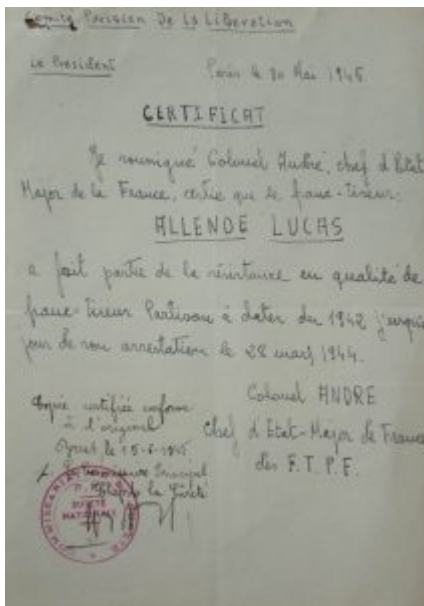 Comité Parisien De La Liberation
Le President
Paris le 30 Mai 1945
CERTIFICAT
Je soussigné Colonel André, chef d'Etat
Major de la France, certifie que le franc-tireur:
ALLENDE LUCAS
a fait partie de la résistance en qualité de
franc-tireur Partisan à dater du 1942 jusqu'au
jour de son arrestation le 28 mars 1944.
Colonel ANDRE
Chef d'Etat-Major de France
des F.T.P.F.
Copie certifiée conforme
à l'original
le 15-6-1945
Principal
la Sûreté
COMMISSARIAT
SURETÉ
NATIONALE